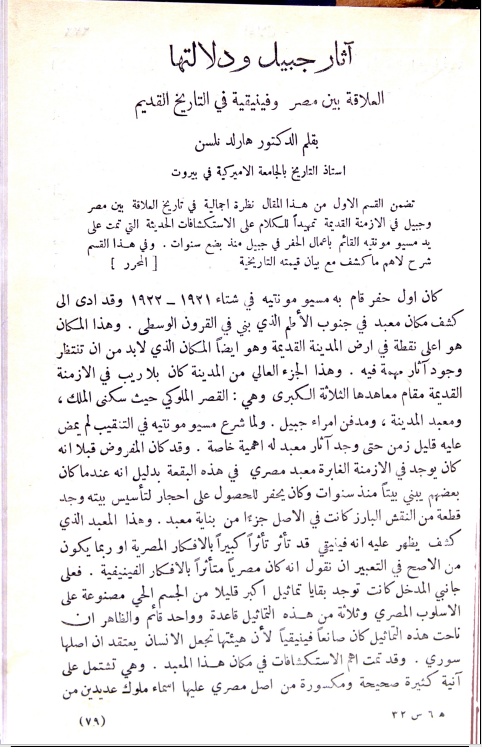 آثار جبيل ودلالتها
العلاقة بين مصر وفينيقية في التاريخ القديم
بقلم الدكتور هارلد نلسن
استاذ التاريخ بالجامعة الاميركية في بيروت
تضمن القسم الاول من هذا المقال نظرة اجمالية في تاريخ العلاقة بين مصر
وجبيل في الازمنة القديمة تمهيداً للكلام على الاستكشافات الحديثة التي تمت على
يد مسيو مونتيه القائم باعمال الحفر في جبيل منذ بضع سنوات . وفي هذا القسم
شرح لاهم ما كشف مع بيان قيمته التاريخية [ المحرر ]
كان اول حفر قام به مسيو مونتيه في شتاء ١٩٢١ – ١٩٢٢ وقد ادى الى
كشف مكان معبد في جنوب الأطم الذي بني في القرون الوسطى . وهذا المكان
هو اعلى نقطة في ارض المدينة القديمة وهو ايضاً المكان الذي لابد من ان تنتظر
وجود آثار مهمة فيه . وهذا الجزء العالي من المدينة كان بلا ريب في الازمنة
القديمة مقام معاهدها الثلاثة الكبرى وهي : القصر الملوكي حيث سكنى الملك ،
ومعبد المدينة ، ومدفن امراء جبيل . ولما شرع مسيو مونتيه في التنقيب لم يمض
عليه قليل زمن حتى وجد آثار معبد له اهمية خاصة . وقد كان المفروض قبلا انه
كان يوجد في الازمنة الغابرة معبد مصري في هذه البقعة بدليل انه عندما كان
بعضهم يبني بيتاً منذ سنوات وكان يحفر للحصول على احجار لتأسيس بيته وجد
قطعة من النقش البارز كانت في الاصل جزءا من بناية معبد . وهذا المعبد الذي
كشف يظهر عليه انه فينيقي قد تأثر تأثراً كبيراً بالافكار المصرية او ربما يكون
من الاصح في التعبير ان نقول انه كان مصرياً متأثراً بالافكار الفينيقية . فعلى
جانبي المدخل كانت توجد بقايا تماثيل اكبر قليلا من الجسم الحي مصنوعة على
الاسلوب المصري وثلاثة من هذه التماثيل قاعدة وواحد قائم والظاهر ان
ناحت هذه التماثيل كان صانعاً فينيقياً لأن هيئتها تجعل الانسان يعتقد ان اصلها
سوري . وقد تمت اهم الاستكشافات في مكان هذا المعبد . وهي تشتمل على
آنية كثيرة صحيحة ومكسورة من اصل مصري عليها اسماء ملوك عديدين من
ه ٦ س ٣٢
(٧٩)